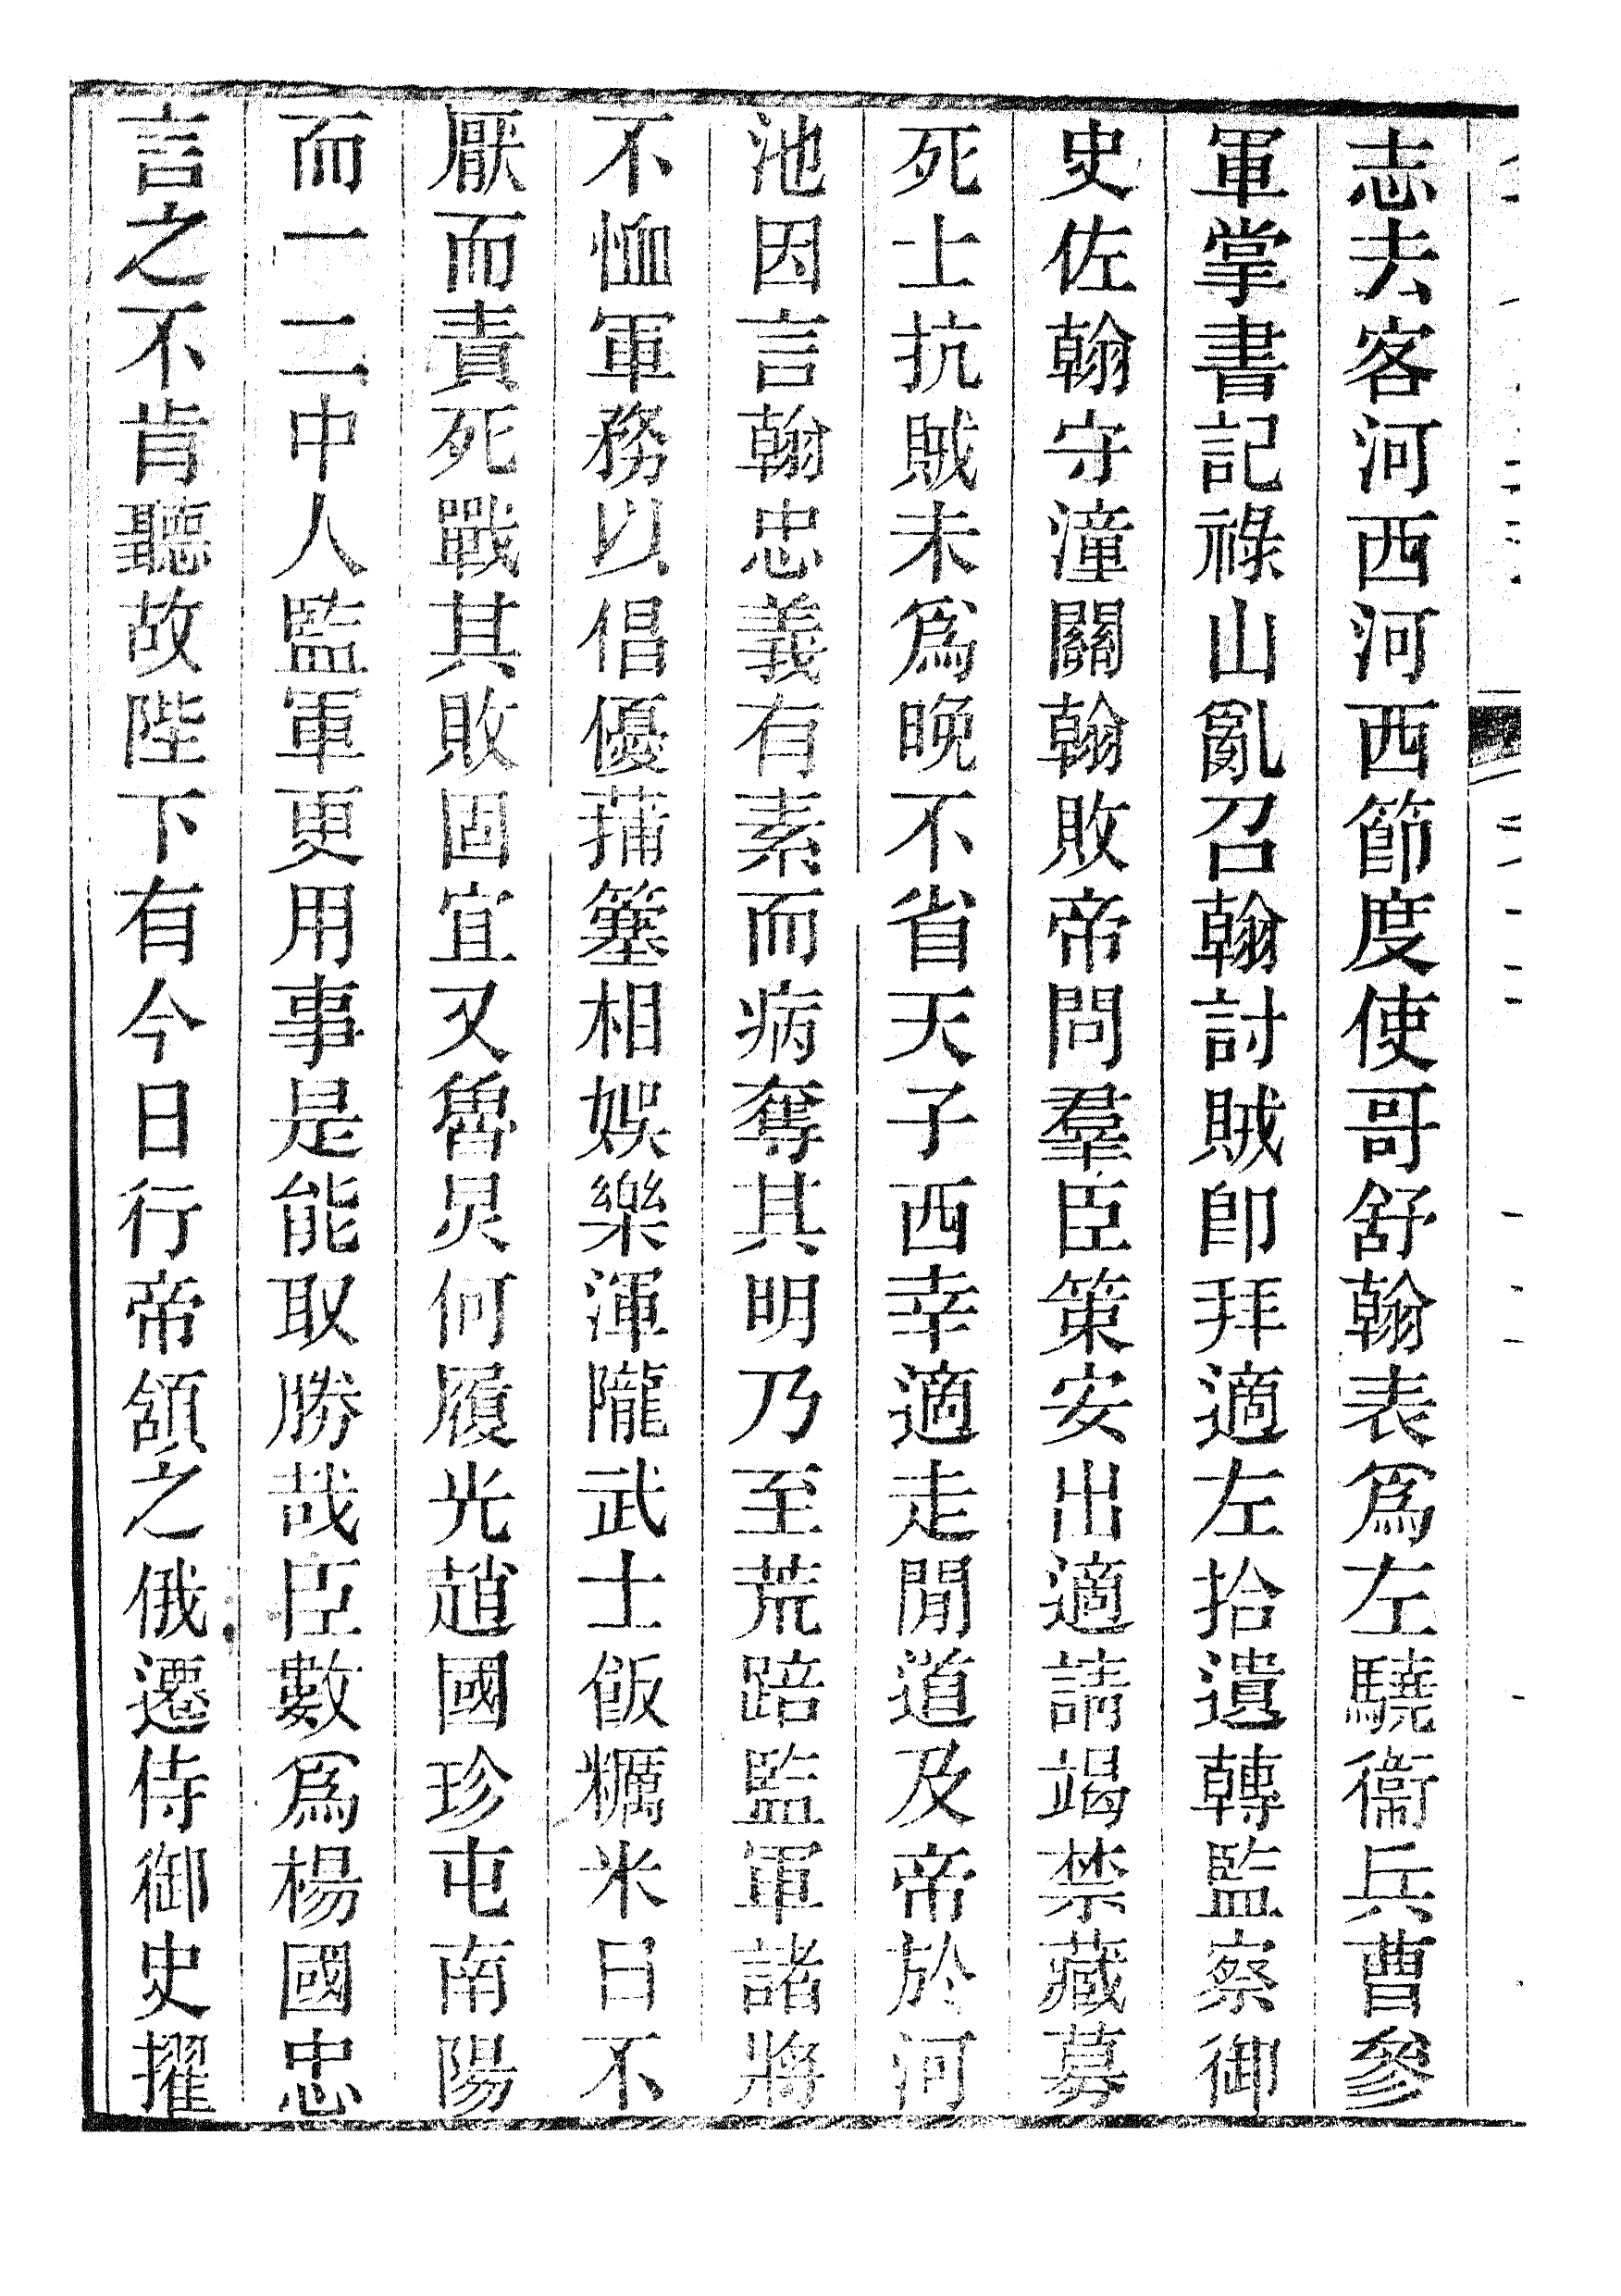 志去客河西河西節度使哥舒翰表爲左驍衞兵曹參
軍掌書記祿山亂召翰討賊卽拜適左拾遺轉監察御
史佐翰守潼關翰敗帝問羣臣策安出適請竭禁藏募
死士抗賊未爲晚不省天子西幸適走閒道及帝於河
池因言翰忠義有素而病奪其明乃至荒踣監軍諸將
不恤軍務以倡優蒱簺相娛樂渾隴武士飯糲米日不
厭而責死戰其敗固宜又魯炅何履光趙國珍屯南陽
而一二中人監軍更用事是能取勝哉臣數爲楊國忠
言之不肯聽故陛下有今日行帝頷之俄遷侍御史擢